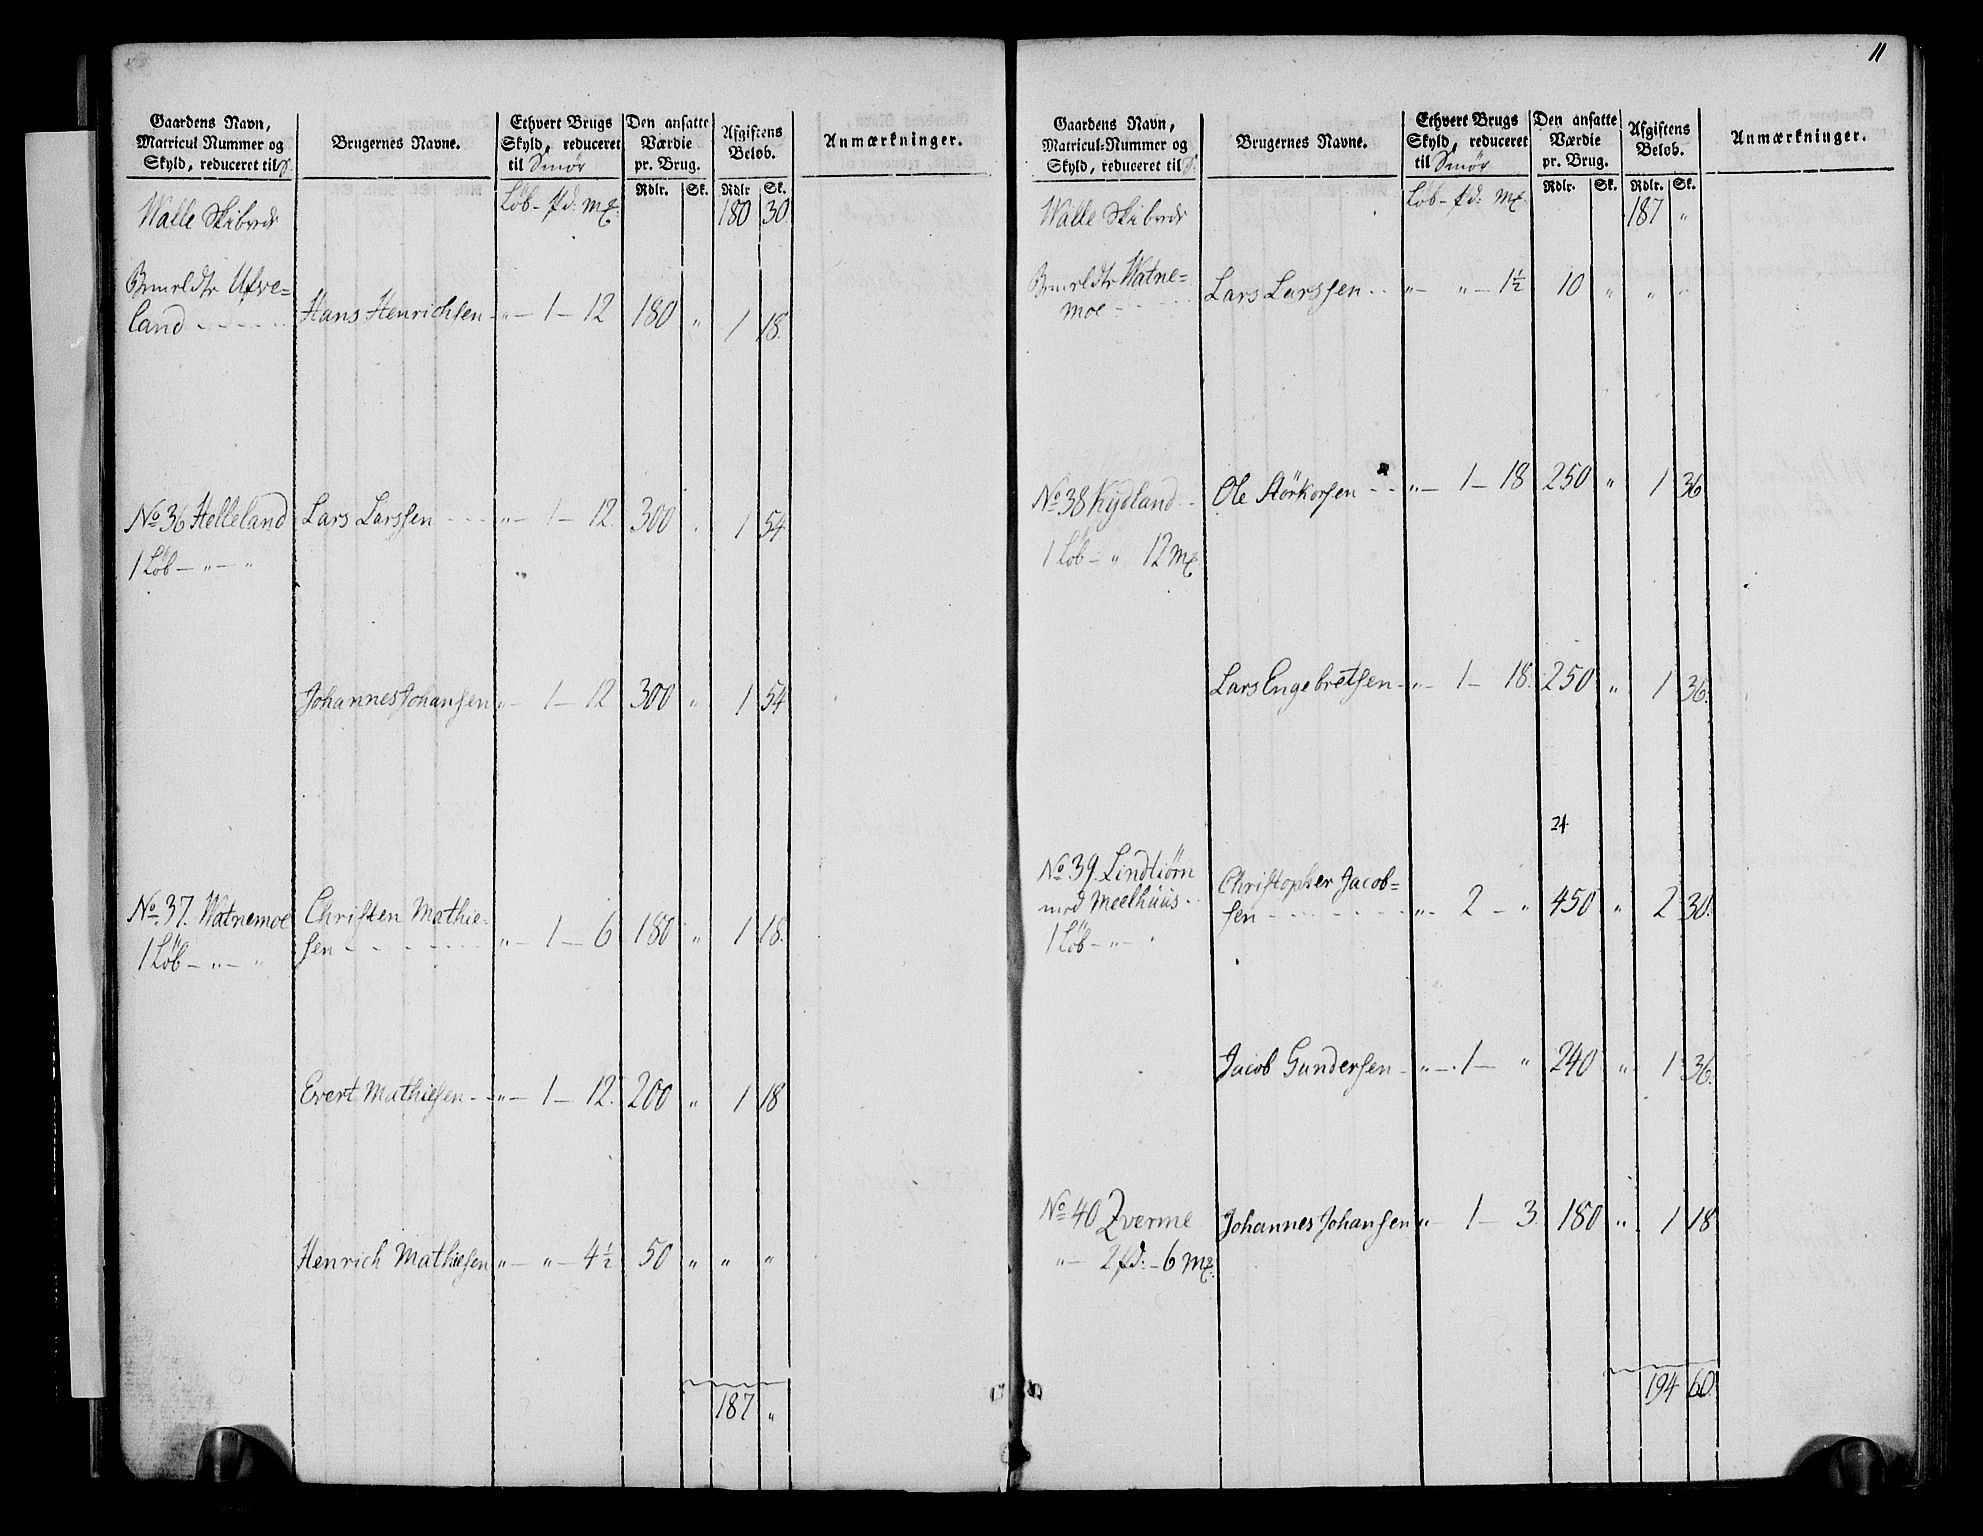 Gaardens Navn,
Matricul Nummer og
Skyld, reduceret til
Brugernes Navne.
Ethvert Brugs
Skyld, reduceret
til Smør
Den ansatte
Værdie
pr. Brug.
Afgiftens
Beløb.
Anmærkninger.
Løb - pd: mk: Rdlr. Sk. Rdlr Sk.
Walle Skibrede 180 30.
Ufve=
land - - - - - Hans Henrichsen - „ - 1 - 12 180 „ 1 18.
No 36 Helleland Lars Larssen - - - - „ - 1 - 12. 300 „ 1 54
1 Løb - „ - „
Johannes Johansen „ - 1 - 12 300 „ 1 54
No 37. Watnemoe Christen Mathie-
1 Løb - „ - „ sen - - - - - - „ - 1 - 6 180 „ 1 18.
Evert Mathiesen - - „ - 1 - 12. 200 „ 1 18
Henrich Mathiesen „ - „ - 4½ 50 „ „ „
187 „
11
Gaardens Navn,
Matricul-Nummer og
Skyld, reduceret til
Brugernes Navne.
Ethvert Brugs
Skyld, reduceret
til Smør
Den ansatte
Værdie
pr. Brug.
Afgiftens
Beløb.
Anmærkninger.
Løb - pd: mk Rdlr. Sk. Rdlr. Sk.
Walle Skibrede 187 „
Watne=
moe - - - - - Lars Larssen - - „ - „ - 1½ 10 „ „ „
No 38 Kydland - - Ole Störkorsen - - „ - 1 - 18 250 „ 1 36
1 Løb - „ 12 mk
Lars Engebretsen - „ - 1 - 18. 250 „ 1 36.
21.
No 39. Lindtiørn Christopher Jacob=
med Meelhuus - - sen - - - - - - - „ - 2 - „ 450 „ 2 30.
1 Løb - „ - „
Jacob Gundersen - „ - 1 - „ 240 „ 1 36.
No 40 Qverme Johannes Johansen „ - 1 - 3. 180 „ 1 18
„ - 2 pd: - 6 mk:
194 60.